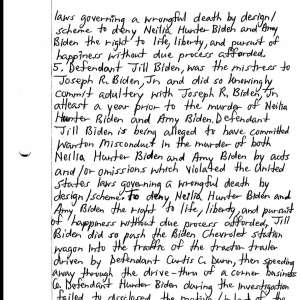 laws governing a wrongful death by design/
scheme to deny Neilia Hunter Biden and Amy
Biden the right to life, liberty, and pursuit of
happiness without due process afforded.
5. Defendant Jill Biden, was the mistress to
Joseph R. Biden, Jr. and did so knowingly
commit adultery with Joseph R. Biden, Jr.
atleast a year prior to the murder of Neilia
Hunter Biden and Amy Biden. Defendant
Jill Biden is being alleged to have committed
Wanton Misconduct in the murder of both
Neilia Hunter Biden and Amy Biden by acts
and/or omissions which violated the United
States laws governing a wrongful death by
design/scheme. To deny Neilia, Hunter Biden and
Amy Biden the right to life, liberty, and pursuit
of happiness without due process afforded, Jill
Biden did so push the Biden Chevrolet station
wagon into the traffic of the tractor trailer
driven by Defendant Curtis C. Dunn, then speeding
away through the drive-thru of a corner business
6. Defendant Hunter Biden during the investigation
failed to disclose the